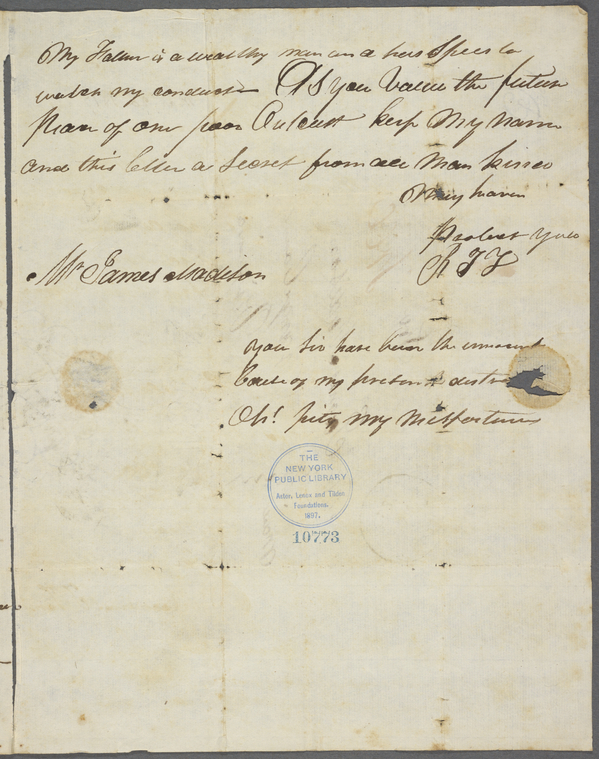 My Father is a wealthy man and has Spies to
watch my conduct As you Value the future
Peace of one poor Outcast keep My name
and this letter a Secret from all Man kind
May haven
Protect you
Mr James Madison
you Sir have been the innocent
Cause of my present distre
Oh! pity my Misfortunes
THE
NEW YORK
PUBLIC LIBRARY
Astor, Lenox and Tilden
Foundations.
1897.
10773